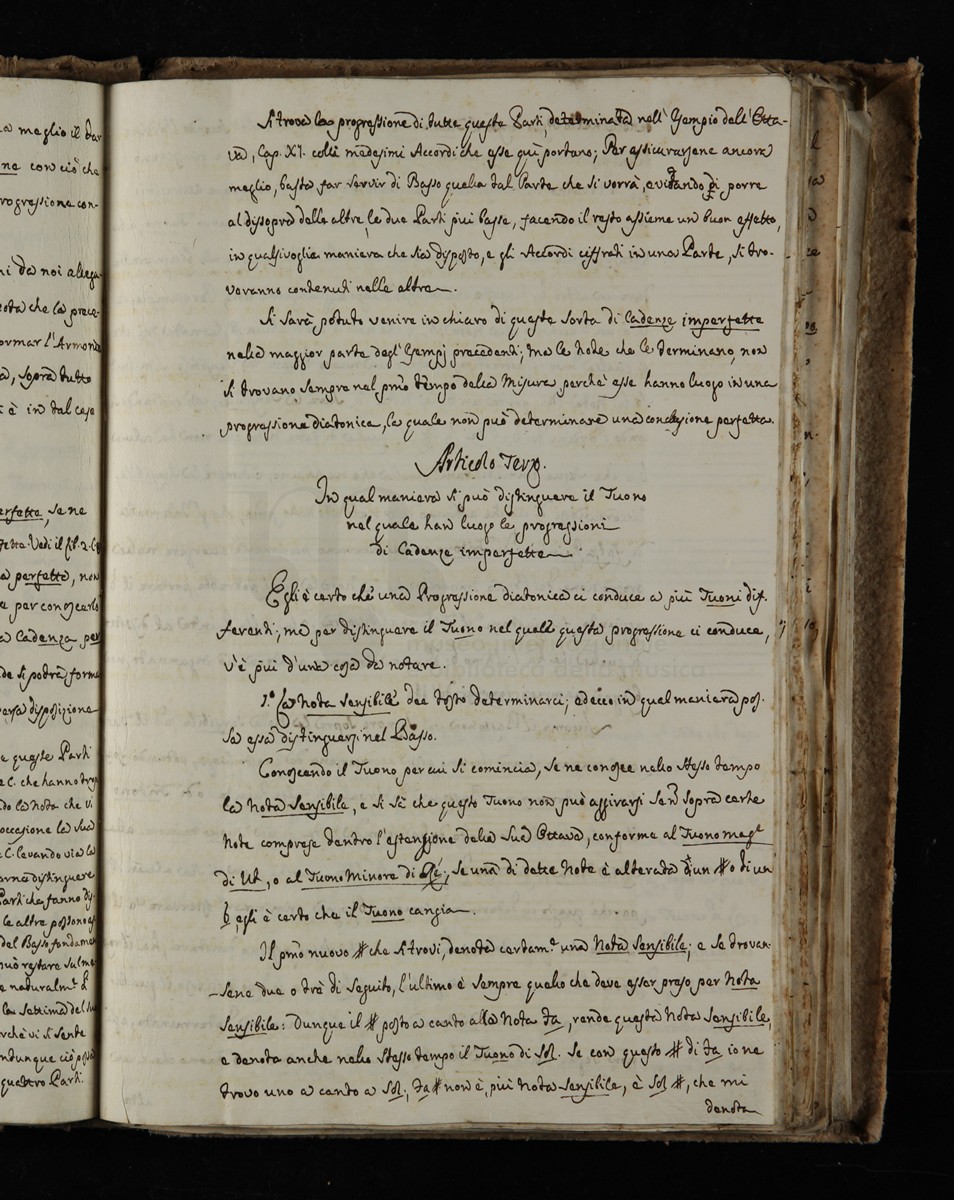 Si trova la progressione di tutte queste Parti determinata nell' Esempio dell' Otta-
va, Cap. XI. colli medesimi Accordi che esse quì portano; Per assicurarsene ancora
meglio, basta far servir di Basso quella tal Parte che si vorrà, evitando di porre
al dissopra delle altre le due Parti più basse, facendo il resto assieme un buon effetto,
in qualsivoglia maniera che sia disposto, e gli Accordi ciffrati in una Parte, si tro-
veranno contenuti nelle altre.
Si sarà potuto venire in chiaro di questa sorta di Cadenze imperfette
nella maggior parte degl' Esempj precedenti; ma le Note che le terminano, non
si trovano sempre nel pmo tempo della Misura, perchè esse hanno luogo in una
progressione diatonica, la quale non può determinare una conclusione perfetta.
Articolo Terzo.
In qual maniera si può distinguere il Tuono
nel quale han luogo le progressioni
di Cadenze imperfette.
Egli è certo che una Progressione diatonica ci conduce a più Tuoni dif-
ferenti; ma per distinguere il Tuono nel quale questa progressione ci conduce,
v'è più d'una cosa da notare.
1.º La Nota Sensibile dee tosto determinarci; ed ecco in qual maniera pos-
sa essa distinguersi nel Basso.
Conoscendo il Tuono per cui si comincia, se ne conosce nello stesso tempo
la Nota Sensibile, e si sà che questo Tuono non può aggirarsi se non sopra certe
Note comprese dentro l'estensione della sua Ottava, conforme al Tuono magre
di Ut, o al Tuono Minore di Rè; se una di dette Note è alterata d'un # o di un
b, egli è certo che il Tuono cangia.
Il pmo nuovo # che si trovi, denota certamte una Nota Sensibile; e se trovan-
sene due o trè di seguito, l'ultimo è sempre quello che deve esser preso per Nota
Sensibile: Dunque il # posto a canto alla Nota fa, rende questa Nota Sensibile,
e denota anche nello stesso tempo il Tuono di Sol. Se con questo # di fa io ne
trovo uno a canto a Sol, fa # non è più Nota Sensibile, è Sol #, che mi
denota